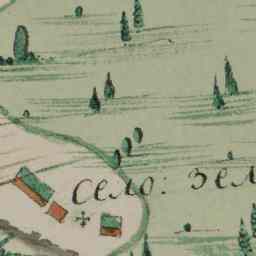 Село: зел